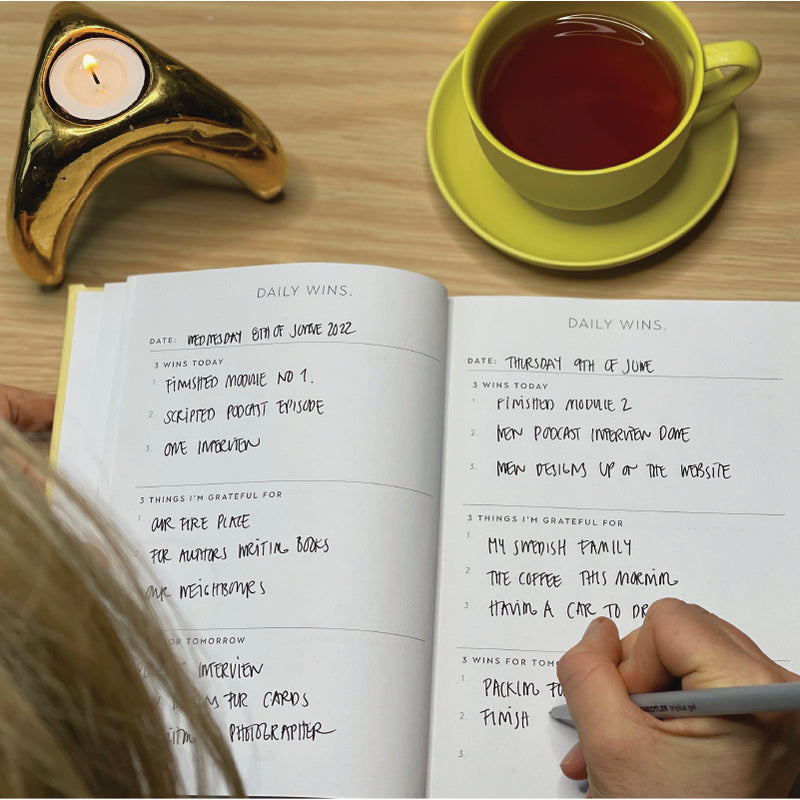 DAILY WINS.
DATE: WEDNESDAY 8TH OF JUNE 2022
3 WINS TODAY
1. FINISHED MODULE NO 1.
2. SCRIPTED PODCAST EPISODE
3. ONE INTERVIEW
3 THINGS I'M GRATEFUL FOR
1. OUR FIRE PLACE
2. FOR AUTHORS WRITING BOOKS
OUR NEIGHBOURS
FOR TOMORROW
INTERVIEW
FUR CARDS
PHOTOGRAPHER
DAILY WINS.
DATE: THURSDAY 9TH OF JUNE
3 WINS TODAY
1. FINISHED MODULE 2
2. NEW PODCAST INTERVIEW DONE
3. NEW DESIGNS UP ON THE WEBSITE
3 THINGS I'M GRATEFUL FOR
1. MY SWEDISH FAMILY
2. THE COFFEE THIS MORNING
3. HAVING A CAR TO
3 WINS FOR
1. PACKING
2. FINISH
3.
STAEDTLER triplus gel